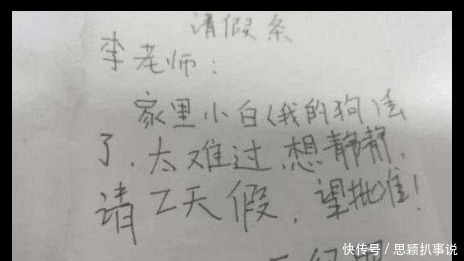 请假条
李老师:
家里小白(我的狗)
了.太难过.想静静,
请2天假.望批准!
快传号/思颖扒事说